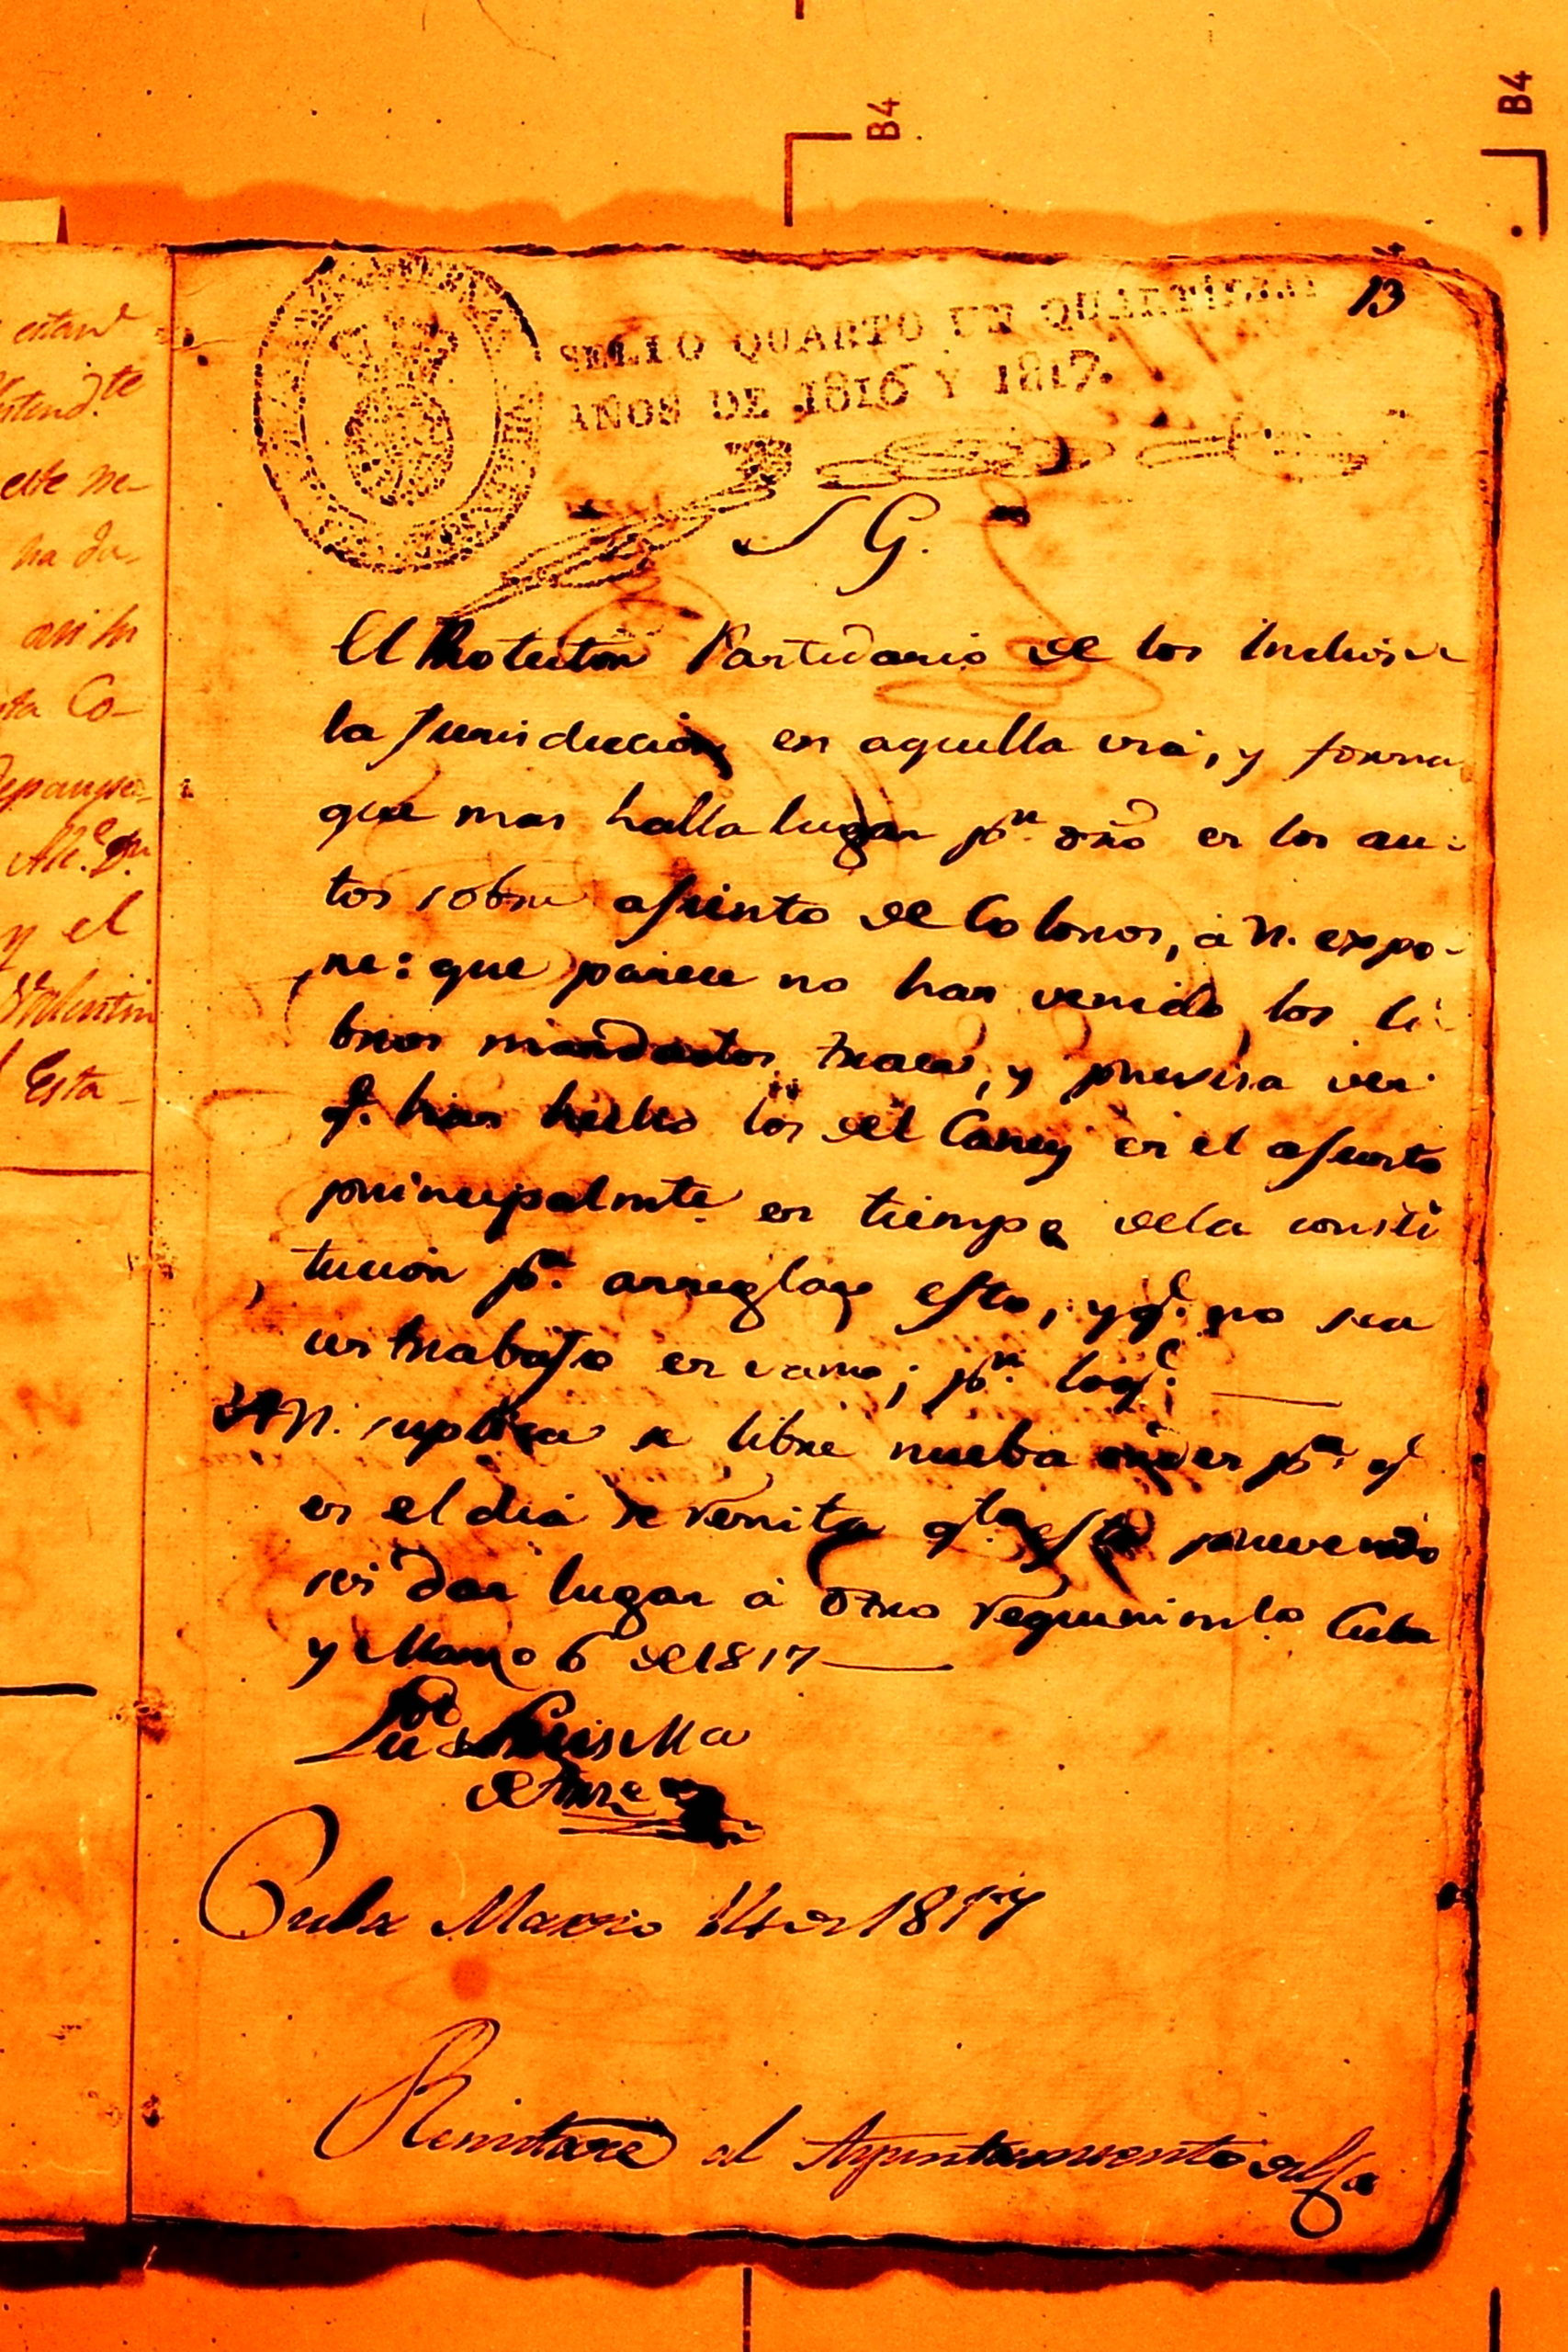 B4
B4
13
SELLO QUARTO UN QUARTILLO
AÑOS DE 1816 Y 1817.
S G.
El Protector Partidario de los Indios de
la Jurisdiccion en aquella via, y forma
que mas halla lugar pr. dro en los au-
tos sobre asunto de Colonos, à V. expo-
ne: que parece no han venido los li-
bros mandados traer, y precisa ver
q. han hecho los del Caney en el asunto
principalmte. en tiempo dela consti
tucion pa. arreglar esto, y qe. no sea
un trabajo en vano; pr. loqe.
A V. suplica se libre nueba orden pa. qe
en el dia se remita qto. esta prevenido
sin dar lugar à otro requerimto. Cuba
y Marzo 6 de 1817
Cuba Marzo 14 de 1817
Remitase al Ayuntamiento del
estand
este ne-
ha da-
sta Co-
y el
Valentin
Esta